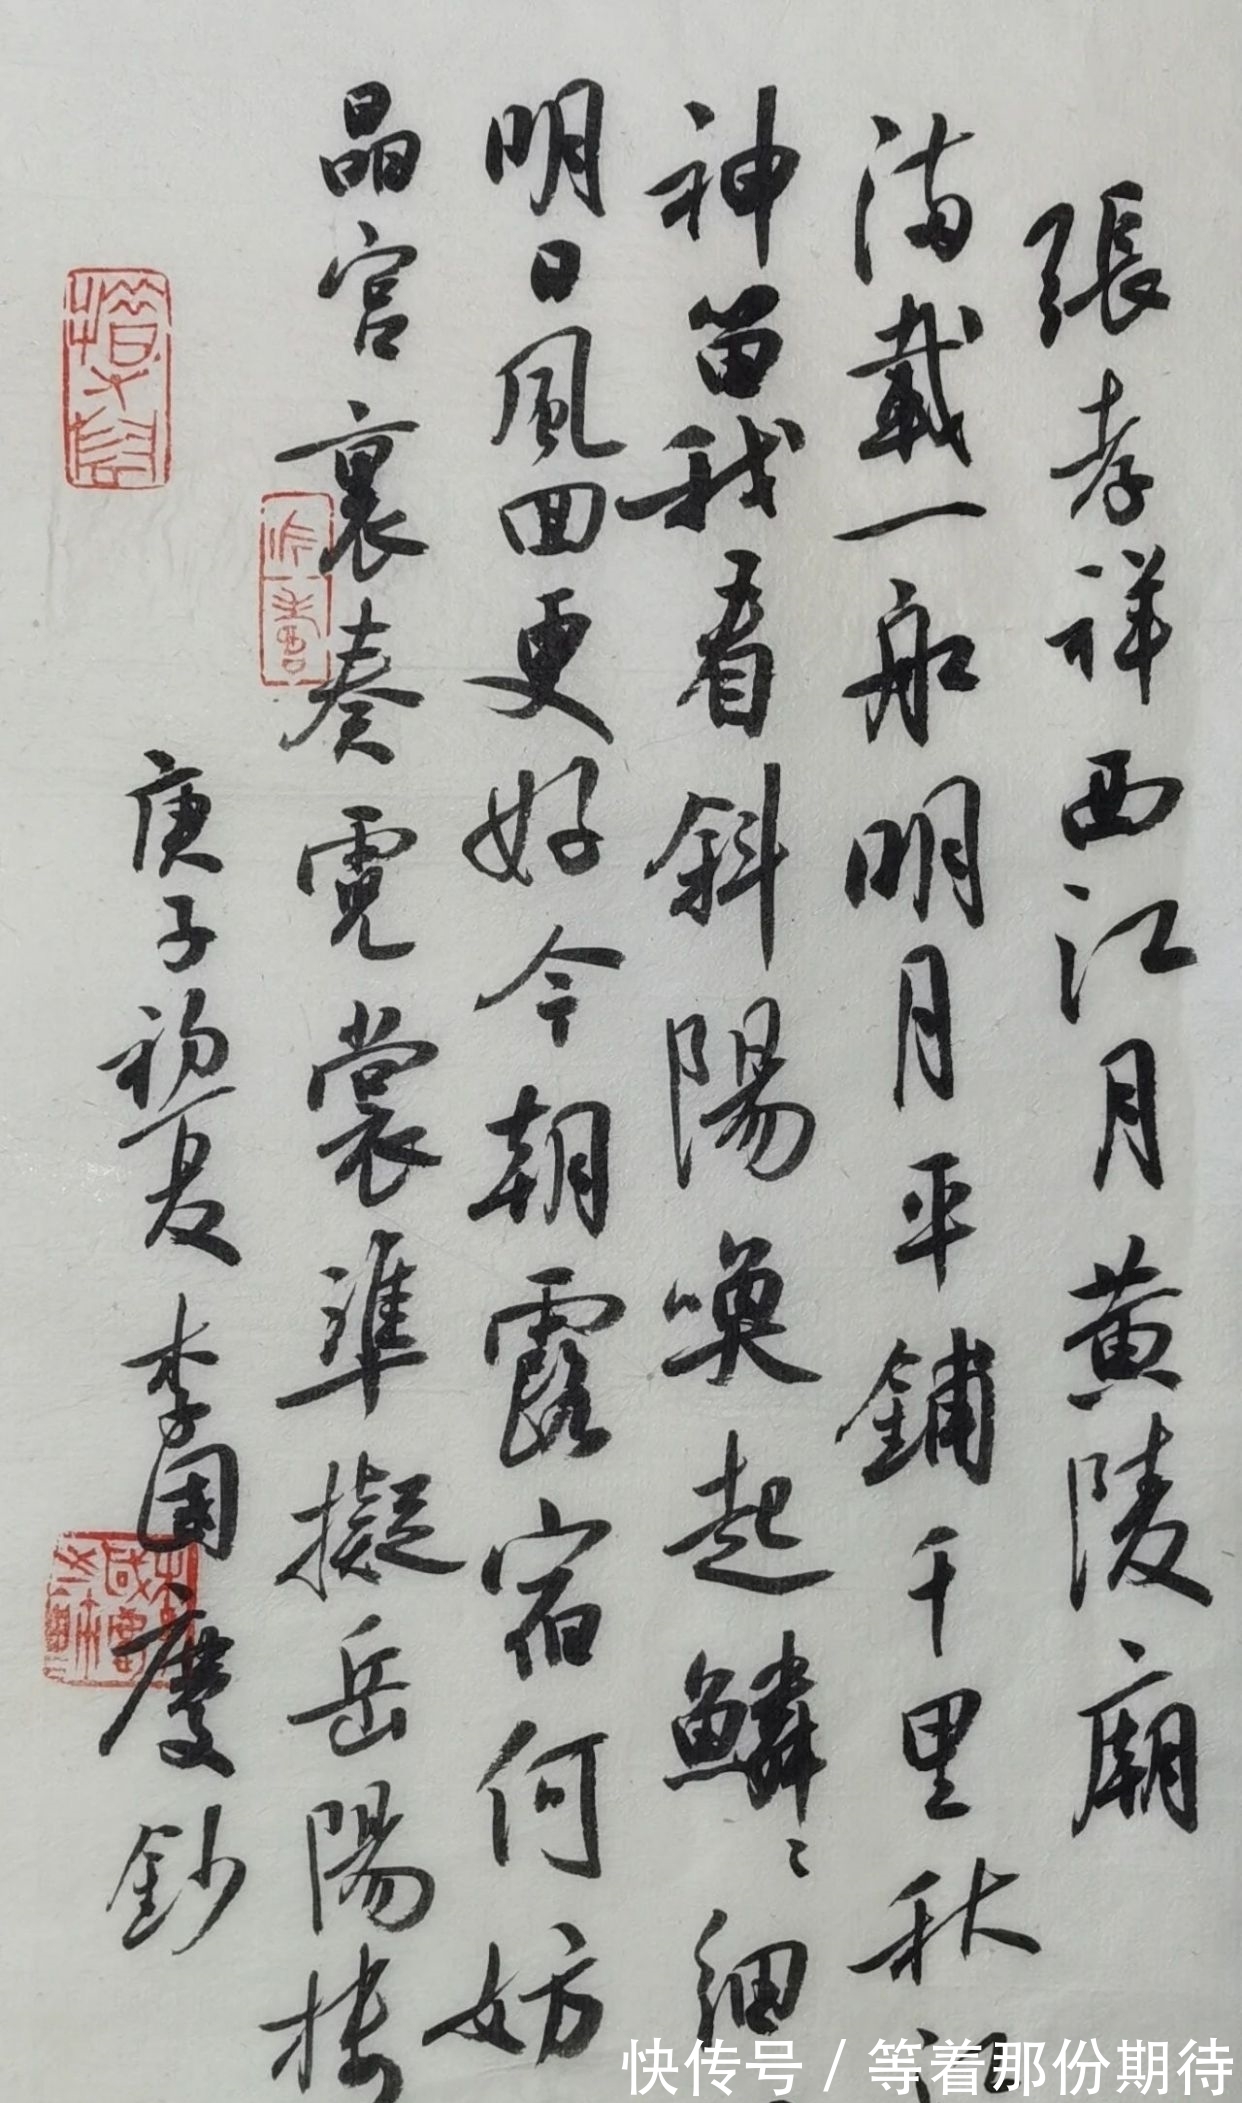 張孝祥西江月黄陵廟
滿載一船明月平鋪千里秋江
神留我看斜陽喚起鱗〻細
明日風回更好今朝露宿何妨
晶宫裏奏霓裳準擬岳陽樓
庚子初夏李國慶鈔
快传号/等着那份期待